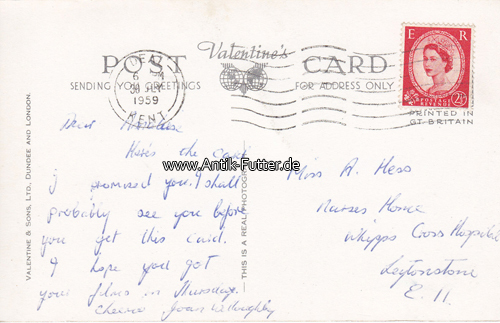 POST Valentine's CARD
SENDING YOU GREETINGS FOR ADDRESS ONLY
DEAL
6
30 JLY
1959
KENT
E R
POSTAGE REVENUE
2½
PRINTED IN
GT. BRITAIN
VALENTINE & SONS, LTD., DUNDEE AND LONDON.
THIS IS A REAL PHOTOGR
Dear
Here's the card
I promised you. I shall
probably see you before
you get this card.
I hope you got
your films on Thursday.
Cheerio Joan Willoughby
Miss A. Hess
Nurses Home
Whipps Cross Hospital
Leytonstone
E. 11.
www.Antik-Futter.de